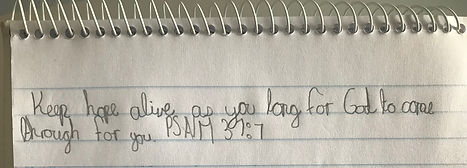 Keep hope alive as you long for God to come
through for you. PSALM 37:7